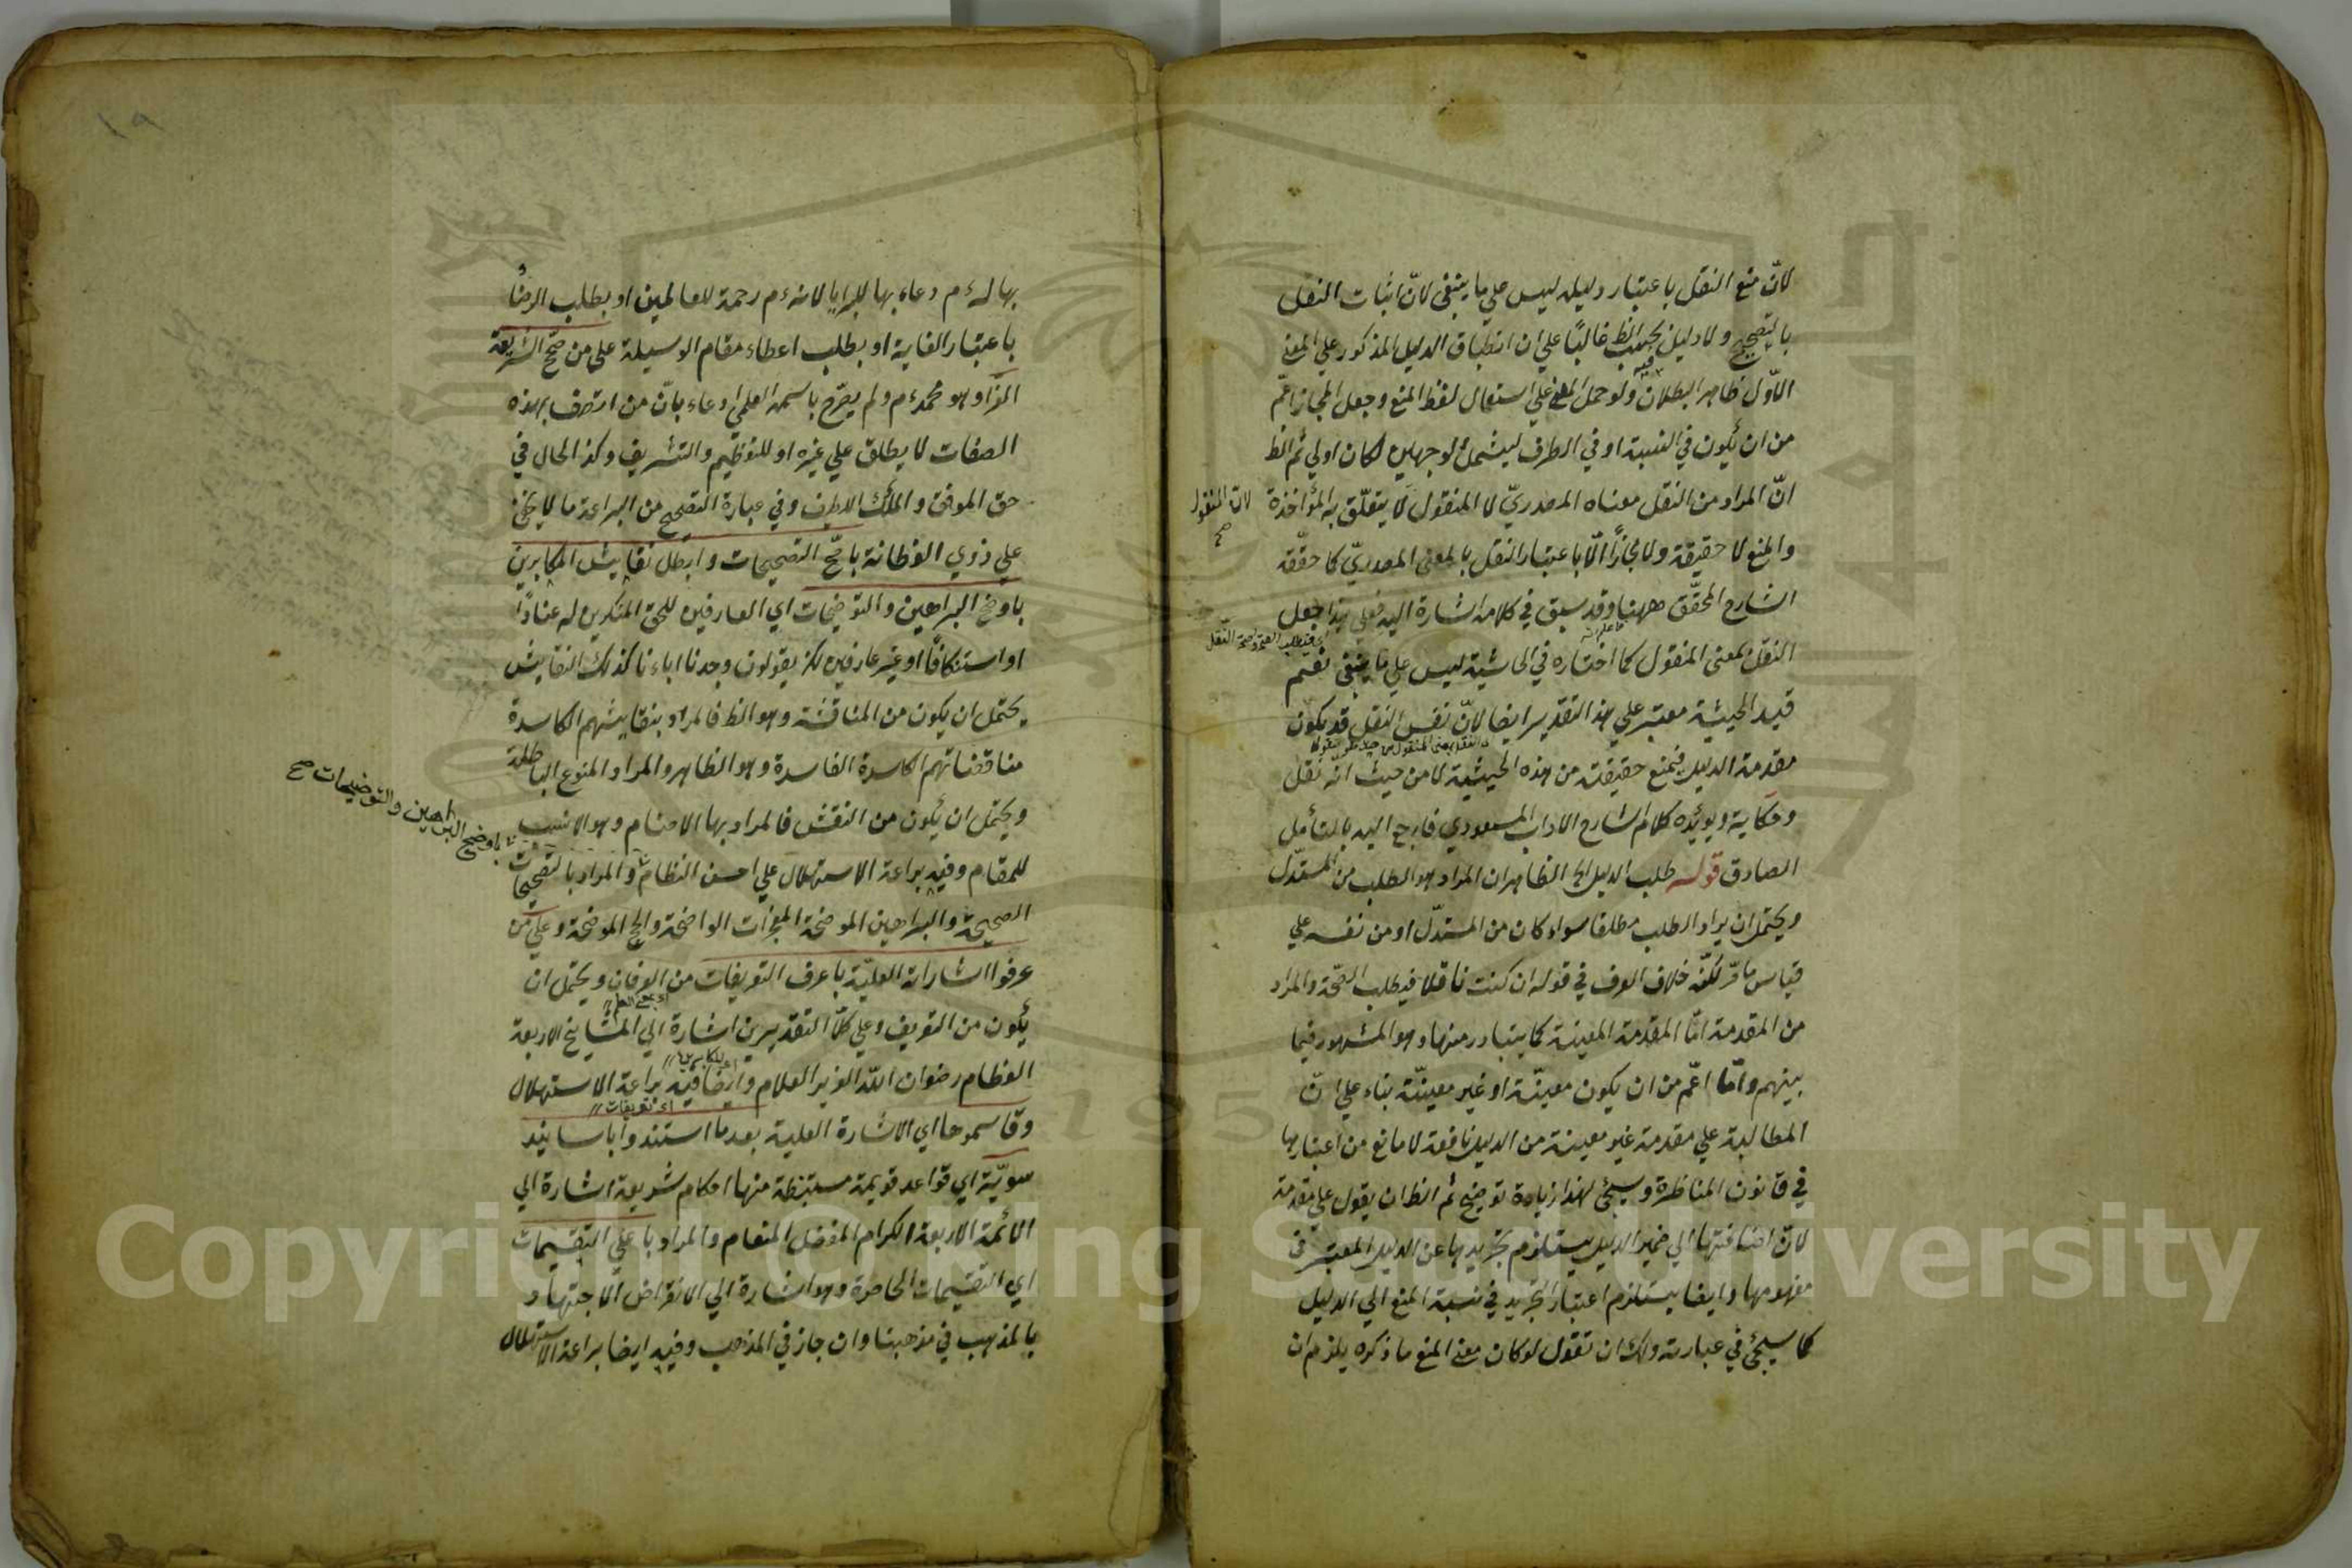 لانّ منع النقل باعتبار دليله ليس علي ما ينبغي لانّ اثبات النقل
بالتصحيح ولا دليل بحسب الظ غالبًا علي ان انطباق الدليل المذكور علي المعنى
الاوّل ظاهر البطلان ولو حمل المعنى علي استعمال لفظ المنع وجعل المجاز اعمّ
من ان يكون في النسبة او في الطرف ليشمل الوجهين لكان اولي ثم الظ
انّ المراد من النقل معناه المصدريّ لا المنقول لا يتعلّق به المؤاخذة
لانّ المنقول صح
والمنع لا حقيقة ولا مجازًا الّا باعتبار النقل بالمعنى المصدريّ كما حقّقه
الشارح المحقّق ههنا وقد سبق في كلامه اشارة اليه فعلي هذا جعل
النقل بمعنى المنقول كما اختاره في الحاشية ليس علي ما ينبغي نعم
قيد الحيثية معتبر علي هذا التقدير ايضا لانّ نفس النقل قد يكون
مقدمة الدليل فيمنع حقيقة من هذه الحيثية لا من حيث انّه نقل
وحكاية ويؤيّده كلام شارح الاداب المسعودي فارجع اليه بالتأمل
الصادق قوله طلب الدليل الخ الظاهر ان المراد هو الطلب من المستدلّ
ويحتمل ان يراد الطلب مطلقا سواء كان من المستدلّ او من نفسه علي
قياس ما مرّ لكنّه خلاف العرف في قوله ان كنت ناقلا فيطلب الصحّة والمراد
من المقدمة امّا المقدمة المعينة كما يتبادر منها وهو المشهور فيما
بينهم وامّا اعمّ من ان يكون معينّة او غير معينّة بناء علي انّ
المطالبة علي مقدمة غير معينة من الدليل نافعة لا مانع من اعتبارها
في قانون المناظرة وسيجئ لهذا زيادة توضيح ثم الظ ان يقول علي مقدمة
لانّ اضافتها الي ضمير الدليل يستلزم تجريدها عن الدليل المعتبر في
مفهومها وايضا يستلزم اعتبار التجريد في نسبة المنع الي الدليل
كما سيجئ في عبارته ولك ان تقول لو كان معنى المنع ما ذكره يلزم ان
١٩
بها له ءم دعاء بها للبرايا لانه ءم رحمة للعالمين او بطلب الرضاء
باعتبار الغاية او بطلب اعطاء مقام الوسيلة علي من صحّح الشريعة
الغراء وهو محمد ءم ولم يصرّح باسمه العلمي ادعاء بانّ من اتصف بهذه
الصفات لا يطلق علي غيره او للتعظيم والتشريف وكذا الحال في
حق الموفق والملك اللطيف وفي عبارة التصحيح من البراعة ما لا يخفى
علي ذوي الفطانة باصّح التصحيحات وابطل نقايش المكابرين
باوضح البراهين والتوضيحات اي العارفين للحق المنكرين له عنادًا
او استنكافًا او غير عارفين لكن يقولون وجدنا اباءنا كذلك النقايش
يحتمل ان يكون من المناقشة وهو الظ فالمراد بنقايشهم الكاسدة
مناقضاتهم الكاسدة الفاسدة وهو الظاهر والمراد المنوع الباطلة
ويحتمل ان يكون من النقش فالمراد بها الاصنام وهو الانسب
باوضح البراهين والتوضيحات صح
للمقام وفيه براعة الاستهلال علي احسن النظام والمراد بالتصحيحات
الصحيحة والبراهين الموضحة المعجزات الواضحة والحج الموضحة وعلي من
عرفوا اشاراته العليّة باعرف التعريفات من العرفان ويحتمل ان
يكون من التعريف وعلي كلا التقديرين اشارة الي المشايخ الاربعة
العظام رضوان اللّه العزيز العلام وايضا فيه براعة الاستهلال
اي تعريفات
وقاسموها اي الاشارة العلية بعد ما استندوا باسانيد
سويّة اي قواعد قويمة مستنبطة منها احكام شريعة اشارة الي
الائمة الاربعة الكرام المفضل المنعام والمراد باعلي التقسيمات
اي التقسيمات الحاصرة وهو اشارة الي الانقراض الاجتهاد
بالمذهب في مذهبنا وان جاز في المذهب وفيه ايضا براعة الاستهلال